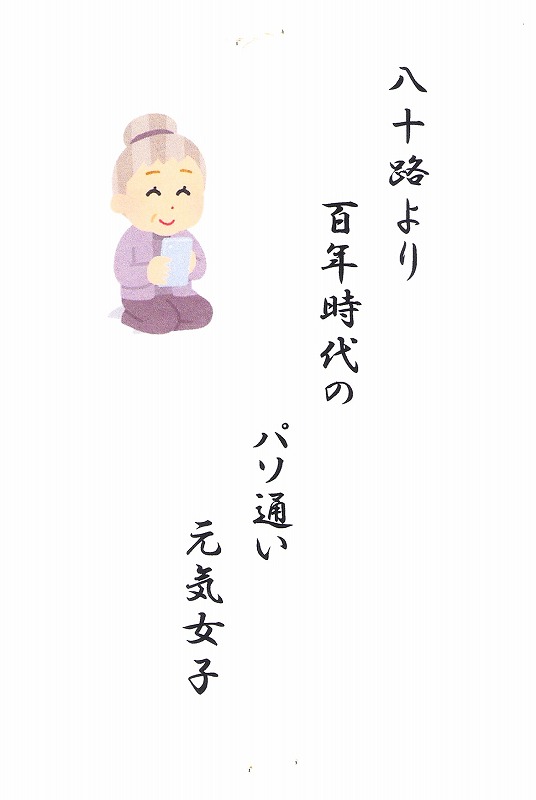 八十路より
百年時代の
パソ通い
元気女子